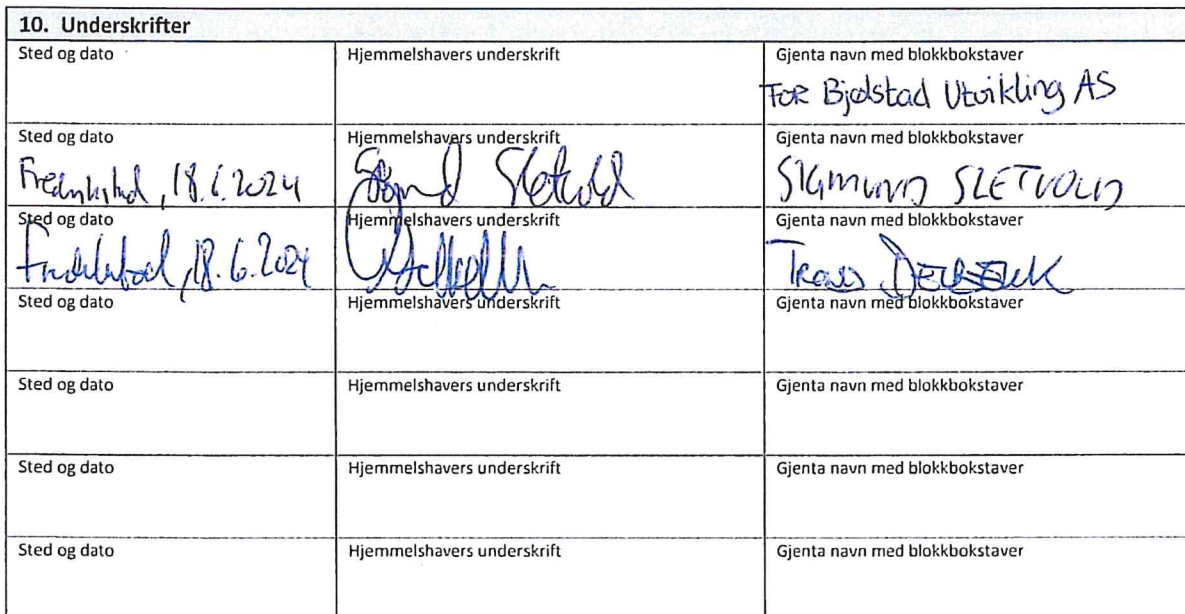 10. Underskrifter
Sted og dato Hjemmelshavers underskrift Gjenta navn med blokkbokstaver
FOR Bjølstad Utvikling AS
Sted og dato Hjemmelshavers underskrift Gjenta navn med blokkbokstaver
Fredrikstad, 18.6.2024 Sigmund Sletvold SIGMUND SLETVOLD
Sted og dato Hjemmelshavers underskrift Gjenta navn med blokkbokstaver
Fredrikstad, 18.6.2024
Sted og dato Hjemmelshavers underskrift Gjenta navn med blokkbokstaver
Sted og dato Hjemmelshavers underskrift Gjenta navn med blokkbokstaver
Sted og dato Hjemmelshavers underskrift Gjenta navn med blokkbokstaver
Sted og dato Hjemmelshavers underskrift Gjenta navn med blokkbokstaver